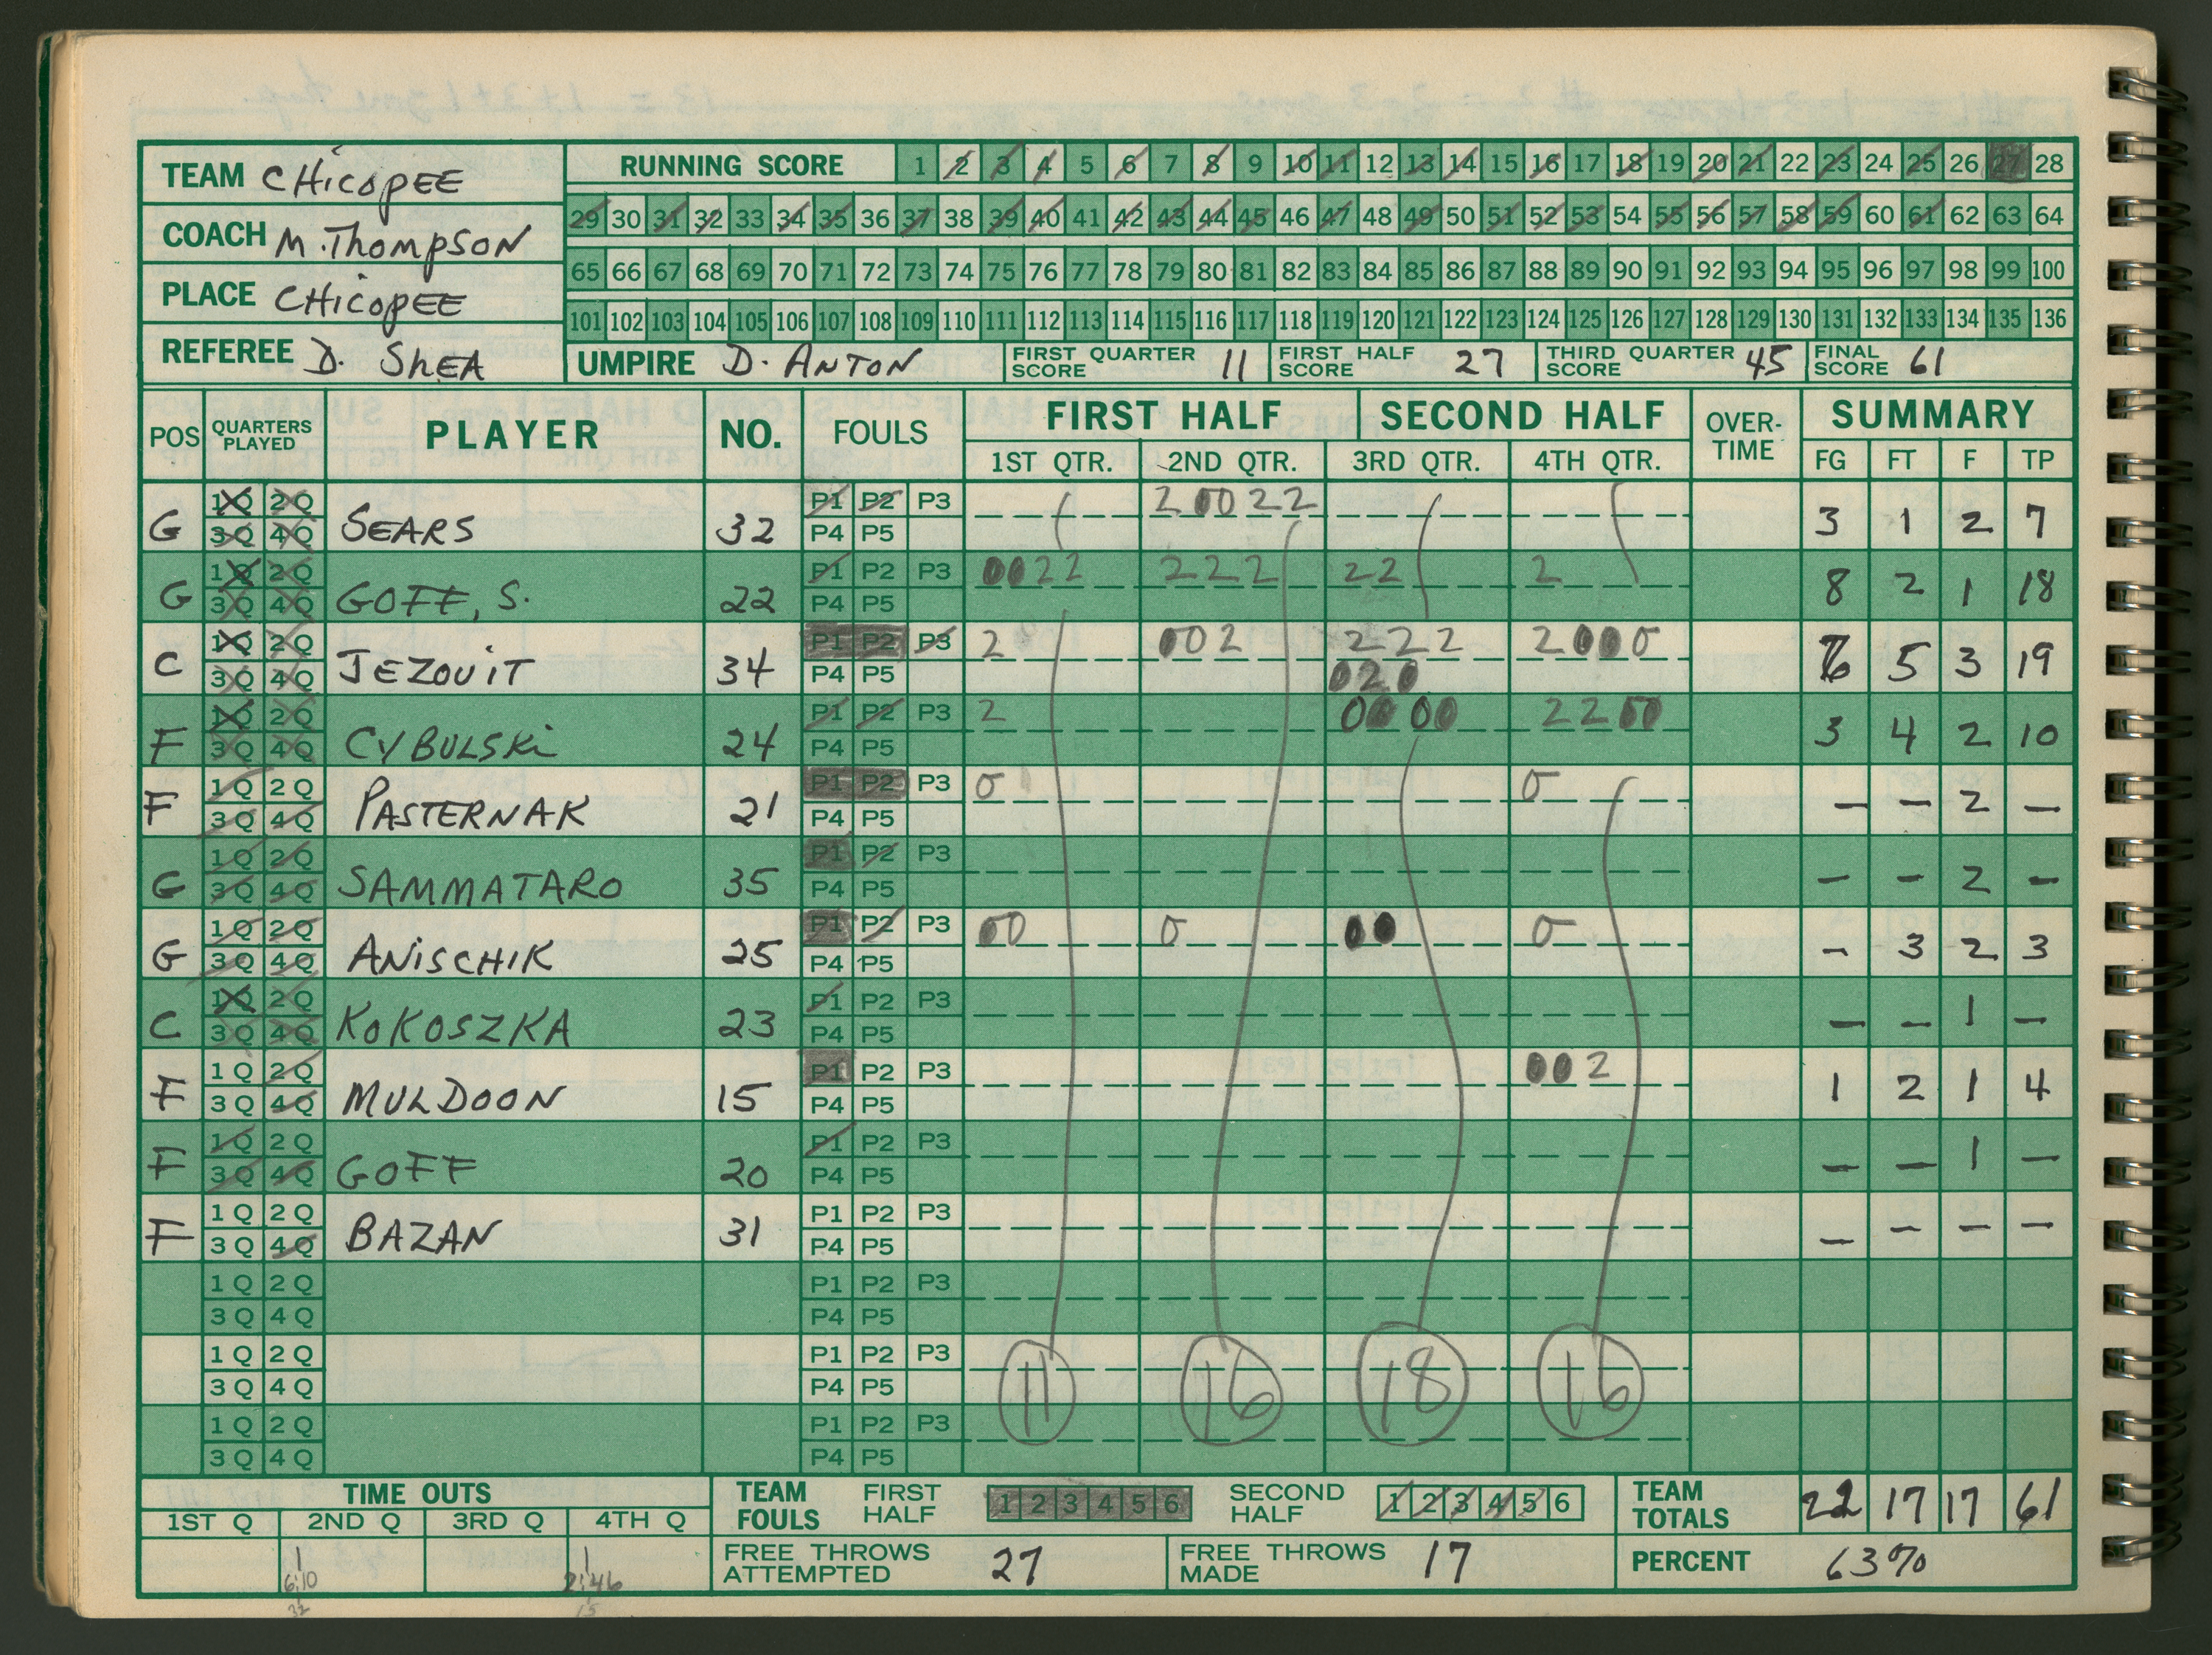 TEAM CHICOPEE
COACH M. THOMPSON
PLACE CHICOPEE
REFEREE D. SHEA
RUNNING SCORE 1 2 3 4 5 6 7 8 9 10 11 12 13 14 15 16 17 18 19 20 21 22 23 24 25 26 27 28
29 30 31 32 33 34 35 36 37 38 39 40 41 42 43 44 45 46 47 48 49 50 51 52 53 54 55 56 57 58 59 60 61 62 63 64
65 66 67 68 69 70 71 72 73 74 75 76 77 78 79 80 81 82 83 84 85 86 87 88 89 90 91 92 93 94 95 96 97 98 99 100
101 102 103 104 105 106 107 108 109 110 111 112 113 114 115 116 117 118 119 120 121 122 123 124 125 126 127 128 129 130 131 132 133 134 135 136
UMPIRE D. ANTON FIRST QUARTER SCORE 11 FIRST HALF SCORE 27 THIRD QUARTER SCORE 45 FINAL SCORE 61
POS QUARTERS PLAYED PLAYER NO. FOULS FIRST HALF SECOND HALF OVER-TIME SUMMARY
1ST QTR. 2ND QTR. 3RD QTR. 4TH QTR. FG FT F TP
1Q 2Q P1 P2 P3 2 0 0 2 2
G 3Q 4Q SEARS 32 P4 P5 3 1 2 7
1Q 2Q P1 P2 P3 0 0 2 2 2 2 2 2 2 2
G 3Q 4Q GOFF, S. 22 P4 P5 8 2 1 18
1Q 2Q P1 P2 P3 2 0 0 2 2 2 2 2 0 0 0
C 3Q 4Q JEZOUIT 34 P4 P5 0 2 0 6 5 3 19
1Q 2Q P1 P2 P3 2 0 0 0 0 2 2 0 0
F 3Q 4Q CYBULSKI 24 P4 P5 3 4 2 10
1Q 2Q P1 P2 P3 0 0
F 3Q 4Q PASTERNAK 21 P4 P5 - - 2 -
1Q 2Q P1 P2 P3
G 3Q 4Q SAMMATARO 35 P4 P5 - - 2 -
1Q 2Q P1 P2 P3 0 0 0 0 0 0
G 3Q 4Q ANISCHIK 25 P4 P5 - 3 2 3
1Q 2Q P1 P2 P3
C 3Q 4Q KOKOSZKA 23 P4 P5 - - 1 -
1Q 2Q P1 P2 P3 0 0 2
F 3Q 4Q MULDOON 15 P4 P5 1 2 1 4
1Q 2Q P1 P2 P3
F 3Q 4Q GOFF 20 P4 P5 - - 1 -
1Q 2Q P1 P2 P3
F 3Q 4Q BAZAN 31 P4 P5 - - - -
1Q 2Q P1 P2 P3
3Q 4Q P4 P5
1Q 2Q P1 P2 P3
3Q 4Q P4 P5 11 16 18 16
1Q 2Q P1 P2 P3
3Q 4Q P4 P5
TIME OUTS
1ST Q 2ND Q 3RD Q 4TH Q
1 1
6:10 2:46
32 15
TEAM FOULS FIRST HALF 1 2 3 4 5 6 SECOND HALF 1 2 3 4 5 6 TEAM TOTALS 22 17 17 61
FREE THROWS ATTEMPTED 27 FREE THROWS MADE 17 PERCENT 63%